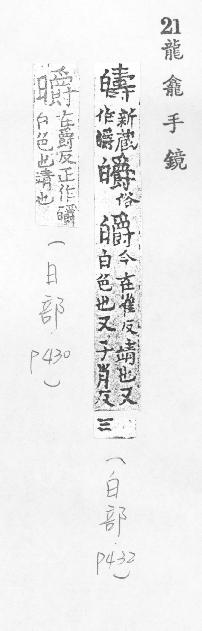 21龍龕手鏡
新藏作皭 皭俗 皭今在雀反靖也又白色也又子肖反三
(白部.p432)
在爵反正作皭白色也靖也
(日部.p430)